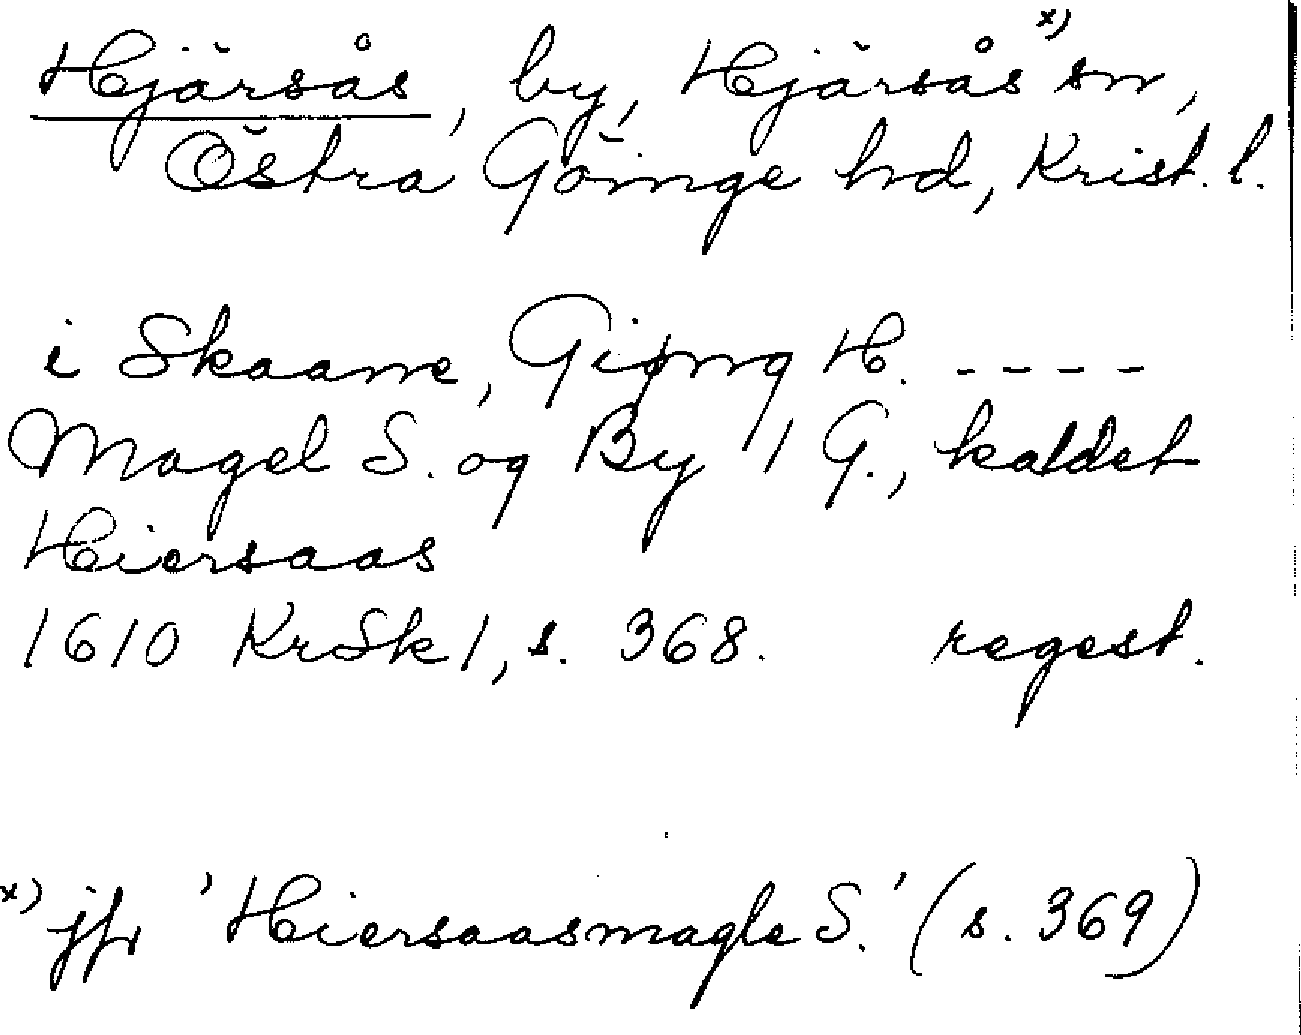 Hjärsås, by, Hjärsås x) sn,
Östra Göinge hd, Krist. l.
i Skaane, Giøng H. ----
Magel S. og By 1 G., kaldet
Hiersaas
1610 KrSk 1, s. 368. regest.
x) jfr 'Hiersaasmagle S.' (s. 369)